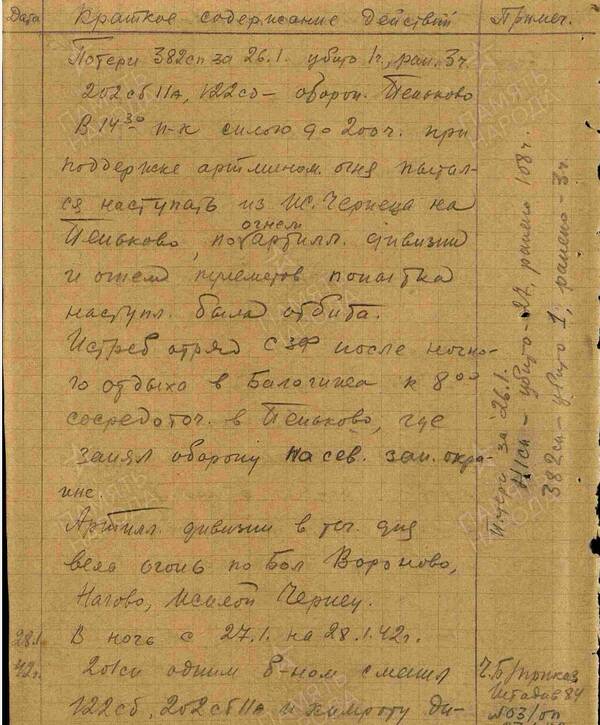 Дата Краткое содержание действий Примеч.
Потери 382сп за 26.1. убито 1ч, ран. 3ч.
202сб 11А, 122сб - оборон. Пеньково
В 14³⁰ п-к силою до 200ч. при
поддержке артмином. огня пытал-
ся наступать из Ис. Чернеца на
Пеньково, но огнем артилл. дивизии
и огнем пулеметов попытка
наступл. была отбита.
Истреб отряд СЗФ после ночно-
го отдыха в к 8⁰⁰
сосредоточ. в Пеньково, где
занял оборону на сев. зап. окра-
ине.
Артилл. дивизии в теч. дня
вела огонь по Бол Вороново,
Нагово, Исаков Чернец.
28.1. В ночь с 27.1. на 28.1.42г.
42г. 201сп одним б-ном сменил
122сб, 202сб 11А и химроту ди-
Потери за 26.1.
41сп - убито - 27, ранено 108ч.
382сп - убито 1, ранено - 3ч.
Ч.Б/приказ
Штадив 84
№03/оп